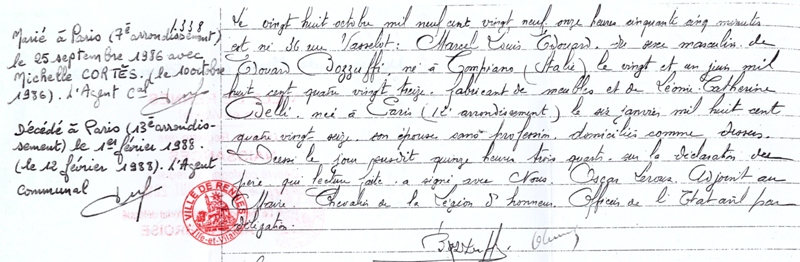 1338
Marié à Paris (7è arrondissement)
le 25 septembre 1986 avec
Michelle CORTÈS. (le 1er octobre
1986). L'Agent Cal
Décédé à Paris (13è arrondis-
sement) le 1er février 1988.
(le 12 février 1988). L'Agent
Communal
Le vingt huit octobre mil neuf cent vingt neuf. onze heures cinquante cinq minutes
est né 36 rue Vasselot : Marcel Louis Edouard. du sexe masculin. de
Edouard Bozzuffi. né à Compiano (Italie) le vingt et un juin mil
huit cent quatre vingt treize. fabricant de meubles et de Léonie Catherine
Delli. née à Paris (12e arrondissement) le six janvier mil huit cent
quatre vingt seize. son épouse sans profession domiciliés comme dessus.
Dressé le jour susdit quinze heures trois quarts. sur la déclaration du
père. qui lecture faite. a signé avec Nous. Oscar Leroux Adjoint au
Maire Chevalier de la Légion d'honneur. Officier de l'Etat civil par
délégation.
Bozzuffi.
VILLE DE RENNES
Ille-et-Vilaine